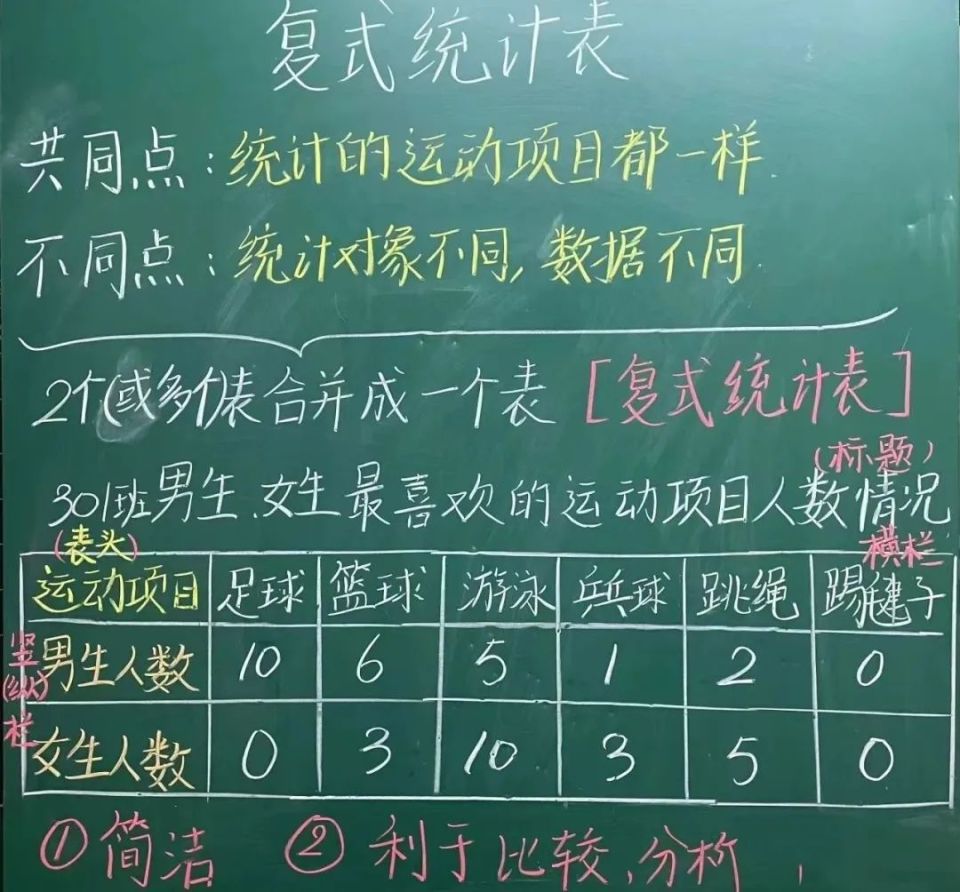 复式统计表
共同点:统计的运动项目都一样.
不同点:统计对象不同,数据不同.
2个(或多个)表合并成一个表[复式统计表]
(标题)
301班男生、女生最喜欢的运动项目人数情况
(表头) 横栏
运动项目 足球 篮球 游泳 乒乓球 跳绳 踢毽子
竖(纵)栏
男生人数 10 6 5 1 2 0
女生人数 0 3 10 3 5 0
①简洁 ②利于比较,分析